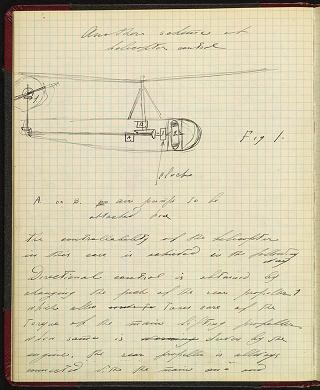 Another scheme of
helicopter control
A
B
Fig 1.
A or B. air pump to be
attached here
The controllability of the helicopter
in this case is obtained in the following
way
Directional control is obtained by
changing the path of the rear propeller
which also takes care of the
torque of the main lifting propeller
when same is driven by the
engine. The rear propeller is always
connected with the main one and